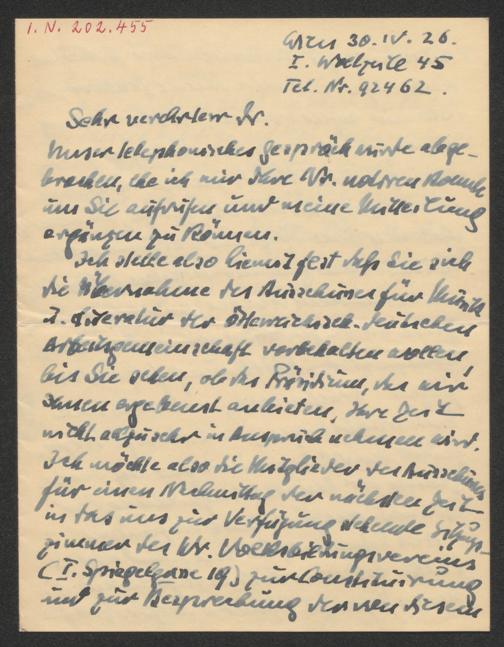 I. N. 202.455
Wien 30. IV. 26.
I. Wollzeile 45
Tel. Nr. 92462.
Sehr verehrter Dr.
Unser telephonisches Gespräch wurde abge-
brochen, ehe ich mir Ihre Nr. notiren konnte
um Sie aufrufen und meine Mitteilung
ergänzen zu können.
Ich stelle also hiemit fest daß Sie sich
die Übernahme des Ausschusses für Musik
u. Literatur der Österreichisch-deutschen
Arbeitsgemeinschaft vorbehalten wollen,
bis Sie sehen, ob das Präsidium, das wir
Ihnen ergebenst anbieten, Ihre Zeit
nicht allzusehr in Anspruch nehmen wird.
Ich möchte also die Mitglieder des Ausschusses
für einen Nachmittag der nächsten Zeit
in das uns zur Verfügung stehende Sitzungs-
zimmer des Wr. Volksbildungsvereins
(I. Spiegelgasse 19) zur Constituirung
und zur Besprechung der von diesem